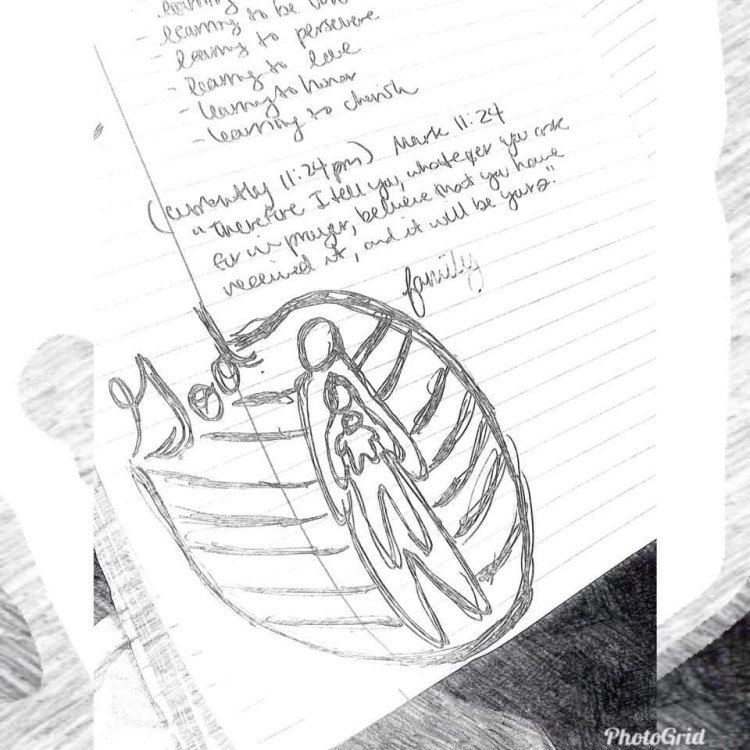 learning
- learning to be
- learning to persevere
- learning to love
- learning to honor
- learning to cherish
(currently 11:24pm) Mark 11:24
"Therefore I tell you, whatever you ask
for in prayer, believe that you have
received it, and it will be yours."
family
God
PhotoGrid